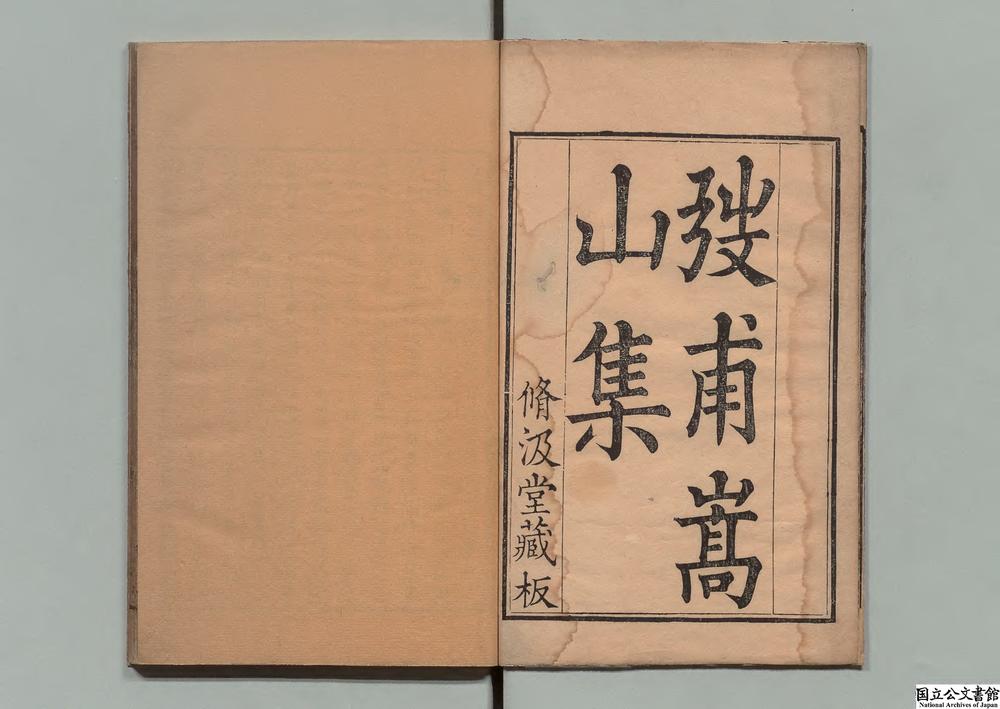 弢甫嵩
山集
脩汲堂藏板
国立公文書館
National Archives of Japan